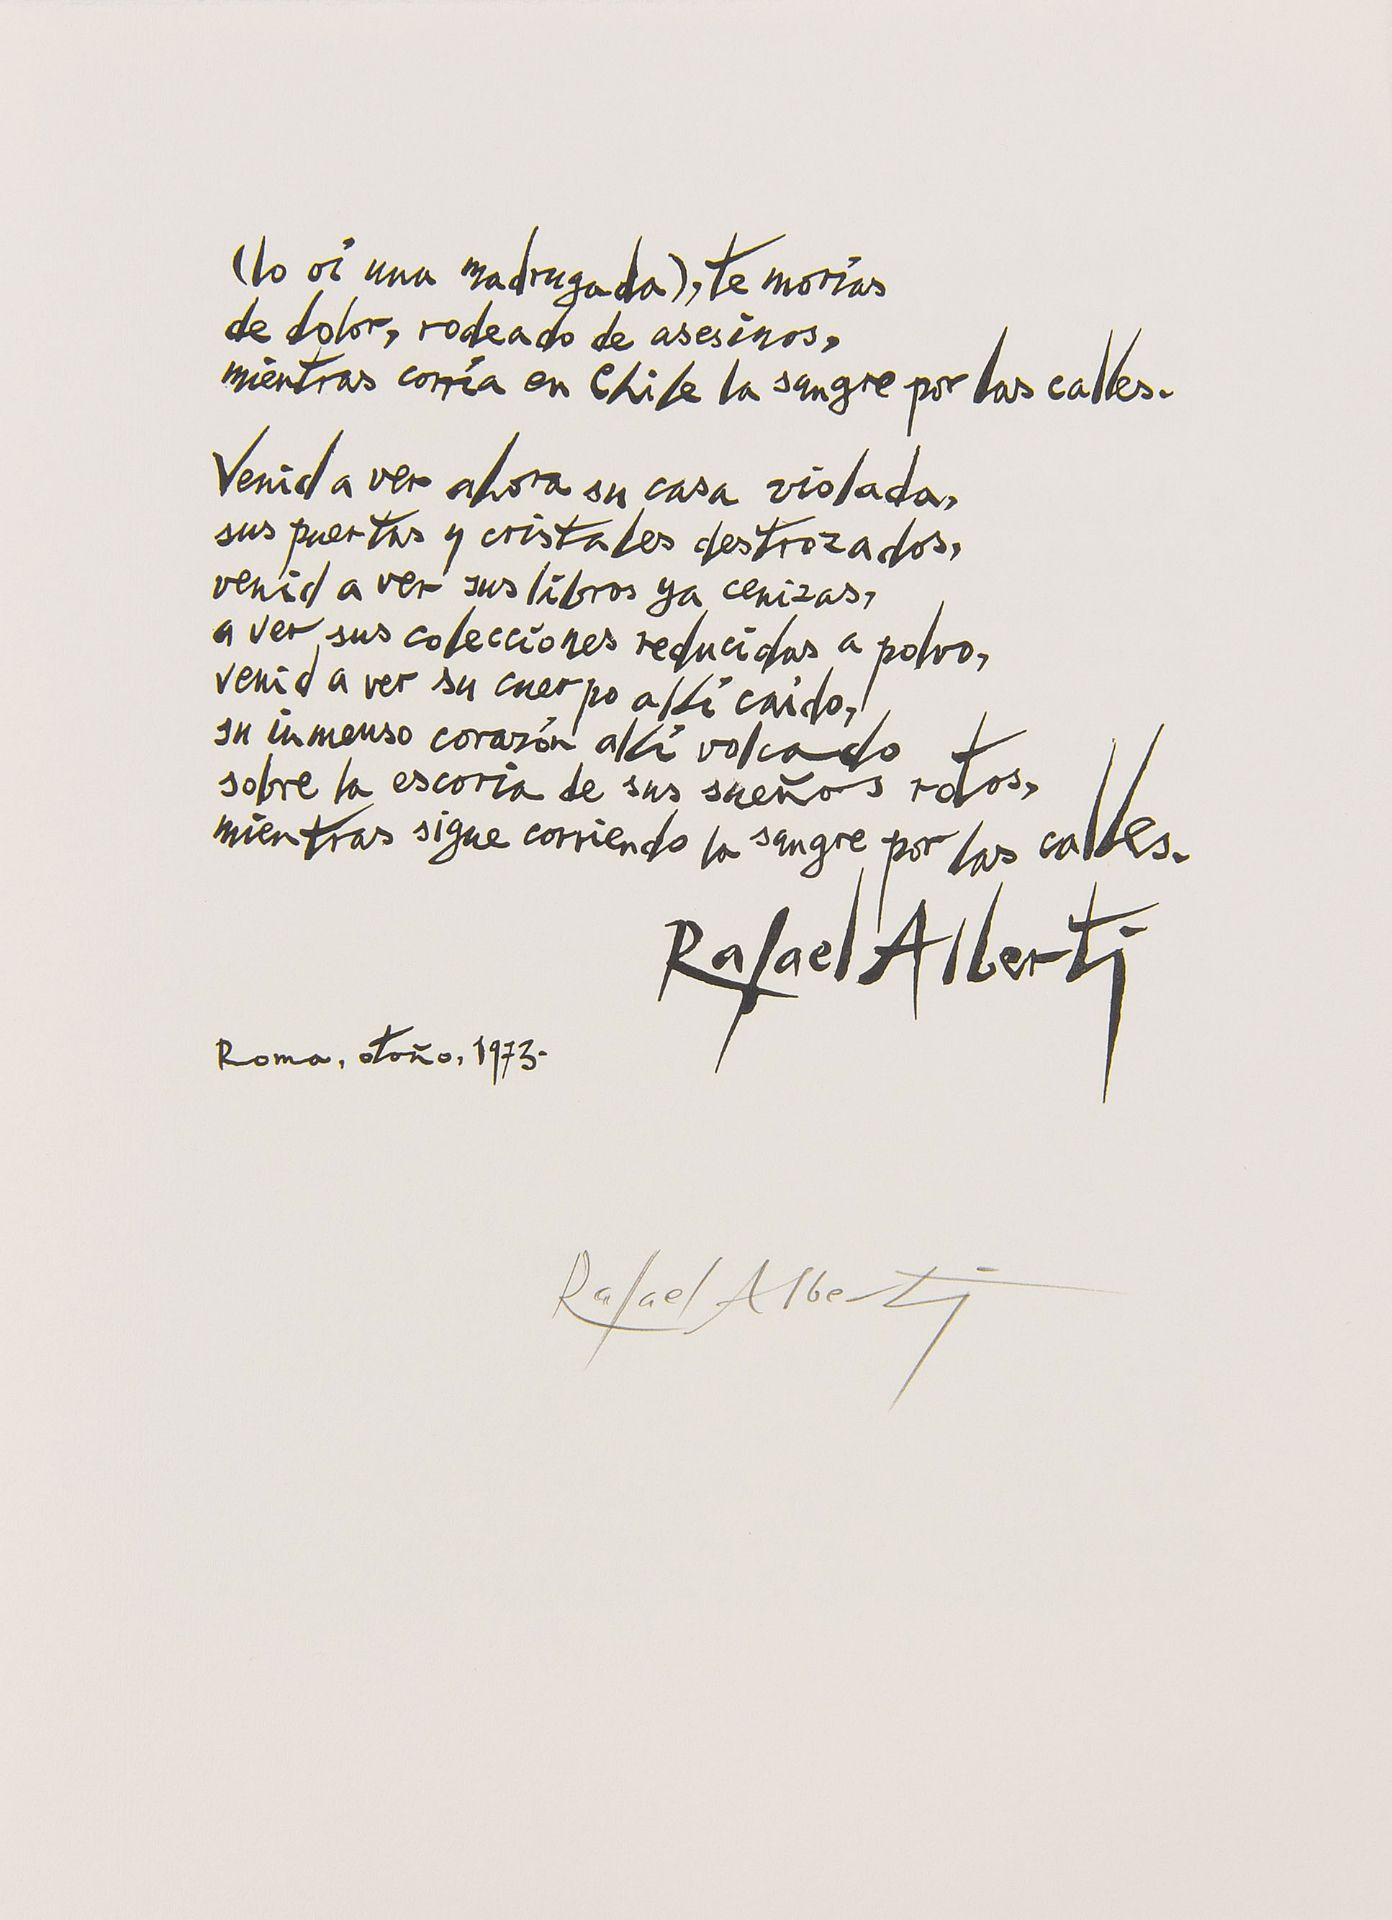 (lo oí una madrugada), te morías
de dolor, rodeado de asesinos,
mientras corría en Chile la sangre por las calles.
Venid a ver ahora su casa violada,
sus puertas y cristales destrozados,
venid a ver sus libros ya cenizas,
a ver sus colecciones reducidas a polvo,
venid a ver su cuerpo allí caído,
su inmenso corazón allí volcado
sobre la escoria de sus sueños rotos,
mientras sigue corriendo la sangre por las calles.
Rafael Alberti
Roma, otoño, 1973-
Rafael Alberti